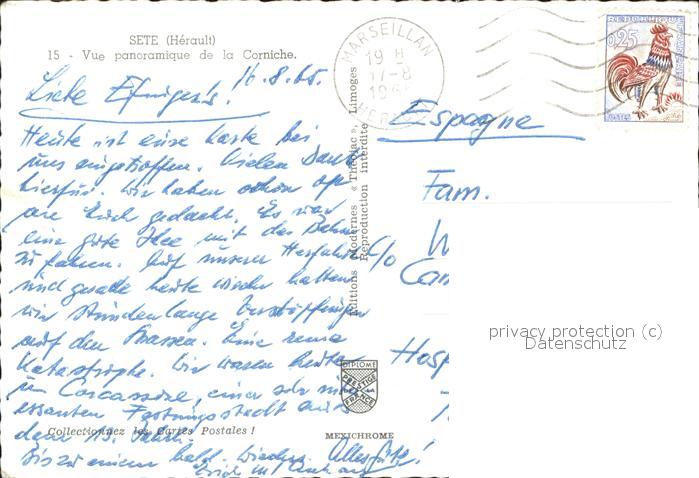 SETE (Hérault)
15 - Vue panoramique de la Corniche.
16.8.65.
Liebe
Heute ist eine Karte bei
uns eingetroffen. Vielen Dank
hierfür. Wir haben schon oft
an Euch gedacht. Es war
eine gute Idee mit der Bahn
zu fahren. Auf unserer Herfahrt
und gerade heute wieder hatten
wir stundenlange Verstopfungen
auf den Strassen. Eine reine
Katastrophe. Wir waren heute
in Carcassonne, einer sehr inter-
essanten Festungsstadt aus
dem 13. Jahrh.
Bis zu einem bald. Wiedersehn. Alles Gute!
Erich
Collectionnez les Cartes Postales !
Editions Modernes « Théojac », Limoges
Reproduction interdite
DIPLOME
PRESTIGE
DE LA
FRANCE
MEXICHROME
MARSEILLAN
19 H
17-8
HERAULT
0,25
POSTES
Espagne
Fam.
c/o
Hosp
privacy protection (c)
Datenschutz